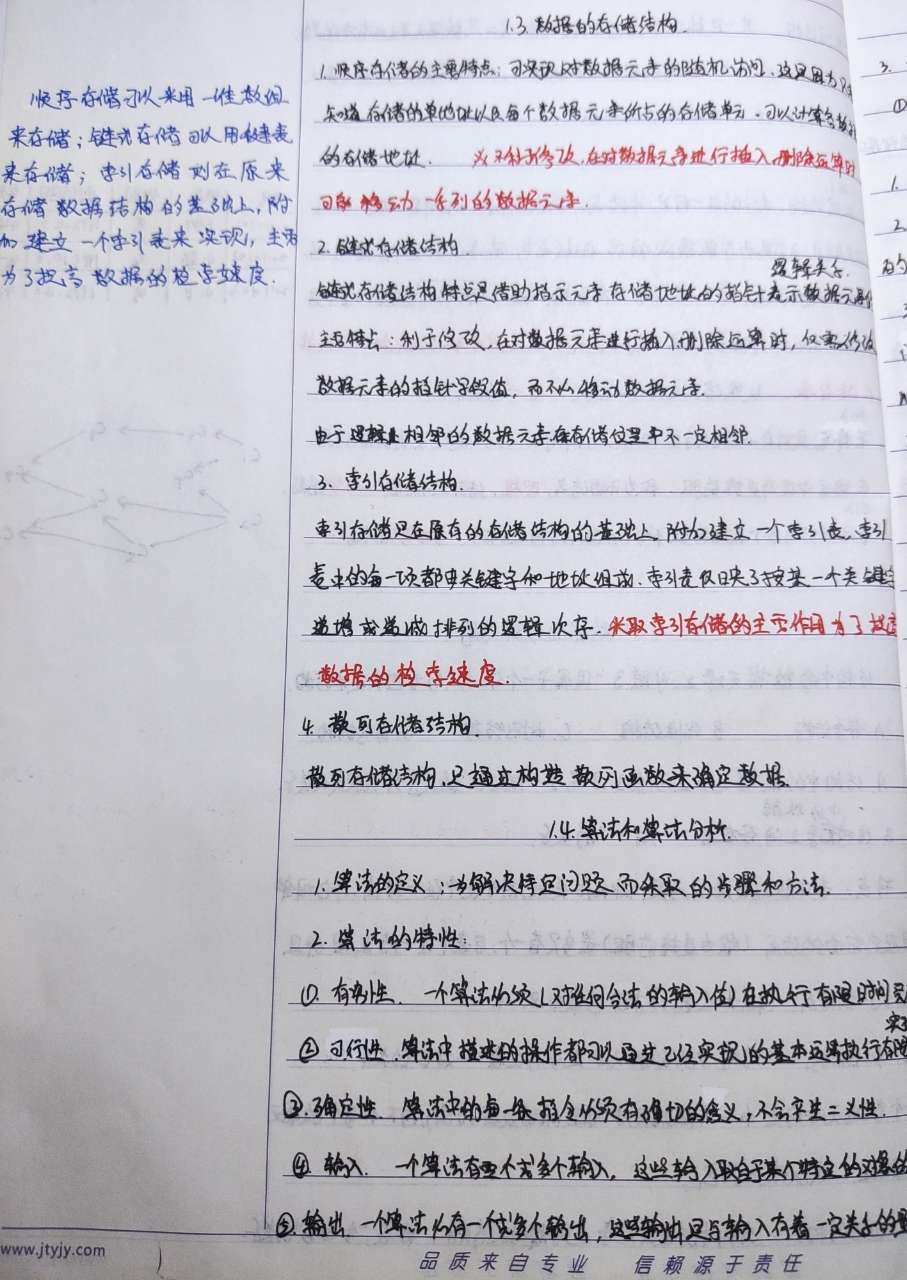 1.3. 数据的存储结构.
1. 顺序存储的主要特点: 可实现对数据元素的随机访问. 这是因为只
知道存储的单地址以及每个数据元素所占的存储单元. 可以计算各数据
的存储地址. 义不利于修改, 在对数据元素进行插入删除运算时
可能移动一系列的数据元素.
2. 链式存储结构
逻辑关系.
链式存储结构特点是借助指示元素存储地址的指针表示数据元素
主要特点: 利于修改, 在对数据元素进行插入删除运算时, 仅需以修改
数据元素的指针字段值, 而不必移动数据元素.
由于逻辑上相邻的数据元素在存储位置中不一定相邻.
3. 索引存储结构.
索引存储是在原存的存储结构的基础上, 附加建立一个索引表, 索引
表中的每一项都由关键字和地址组成. 索引表仅反映了按某一个关键字
递增或递减排列的逻辑次序. 采取索引存储的主要作用为了提高
数据的检索速度.
4. 散列存储结构.
散列存储结构, 是通过构造散列函数来确定数据
1.4. 算法和算法分析.
1. 算法的定义: 为解决特定问题而采取的步骤和方法.
2. 算法的特性:
①. 有穷性. 一个算法必须(对任何合法的输入值)在执行有限时间
② 可行性. 算法中描述的操作都可以通过已经实现的基本运算执行有限
③. 确定性. 算法中的每一条指令必须有确切的含义, 不会产生二义性.
④. 输入. 一个算法有零个或多个输入, 这些输入取自于某个特定的对象的
⑤ 输出. 一个算法必有一个或多个输出, 这些输出是与输入有着一定关系的量
顺序存储可以采用一维数组
来存储; 链式存储可以用链表
来存储; 索引存储则在原来
存储数据结构的基础上, 附
加建立一个索引表来实现, 主要
为了提高数据的检索速度.
www.jtyjy.com
品质来自专业 信赖源于责任